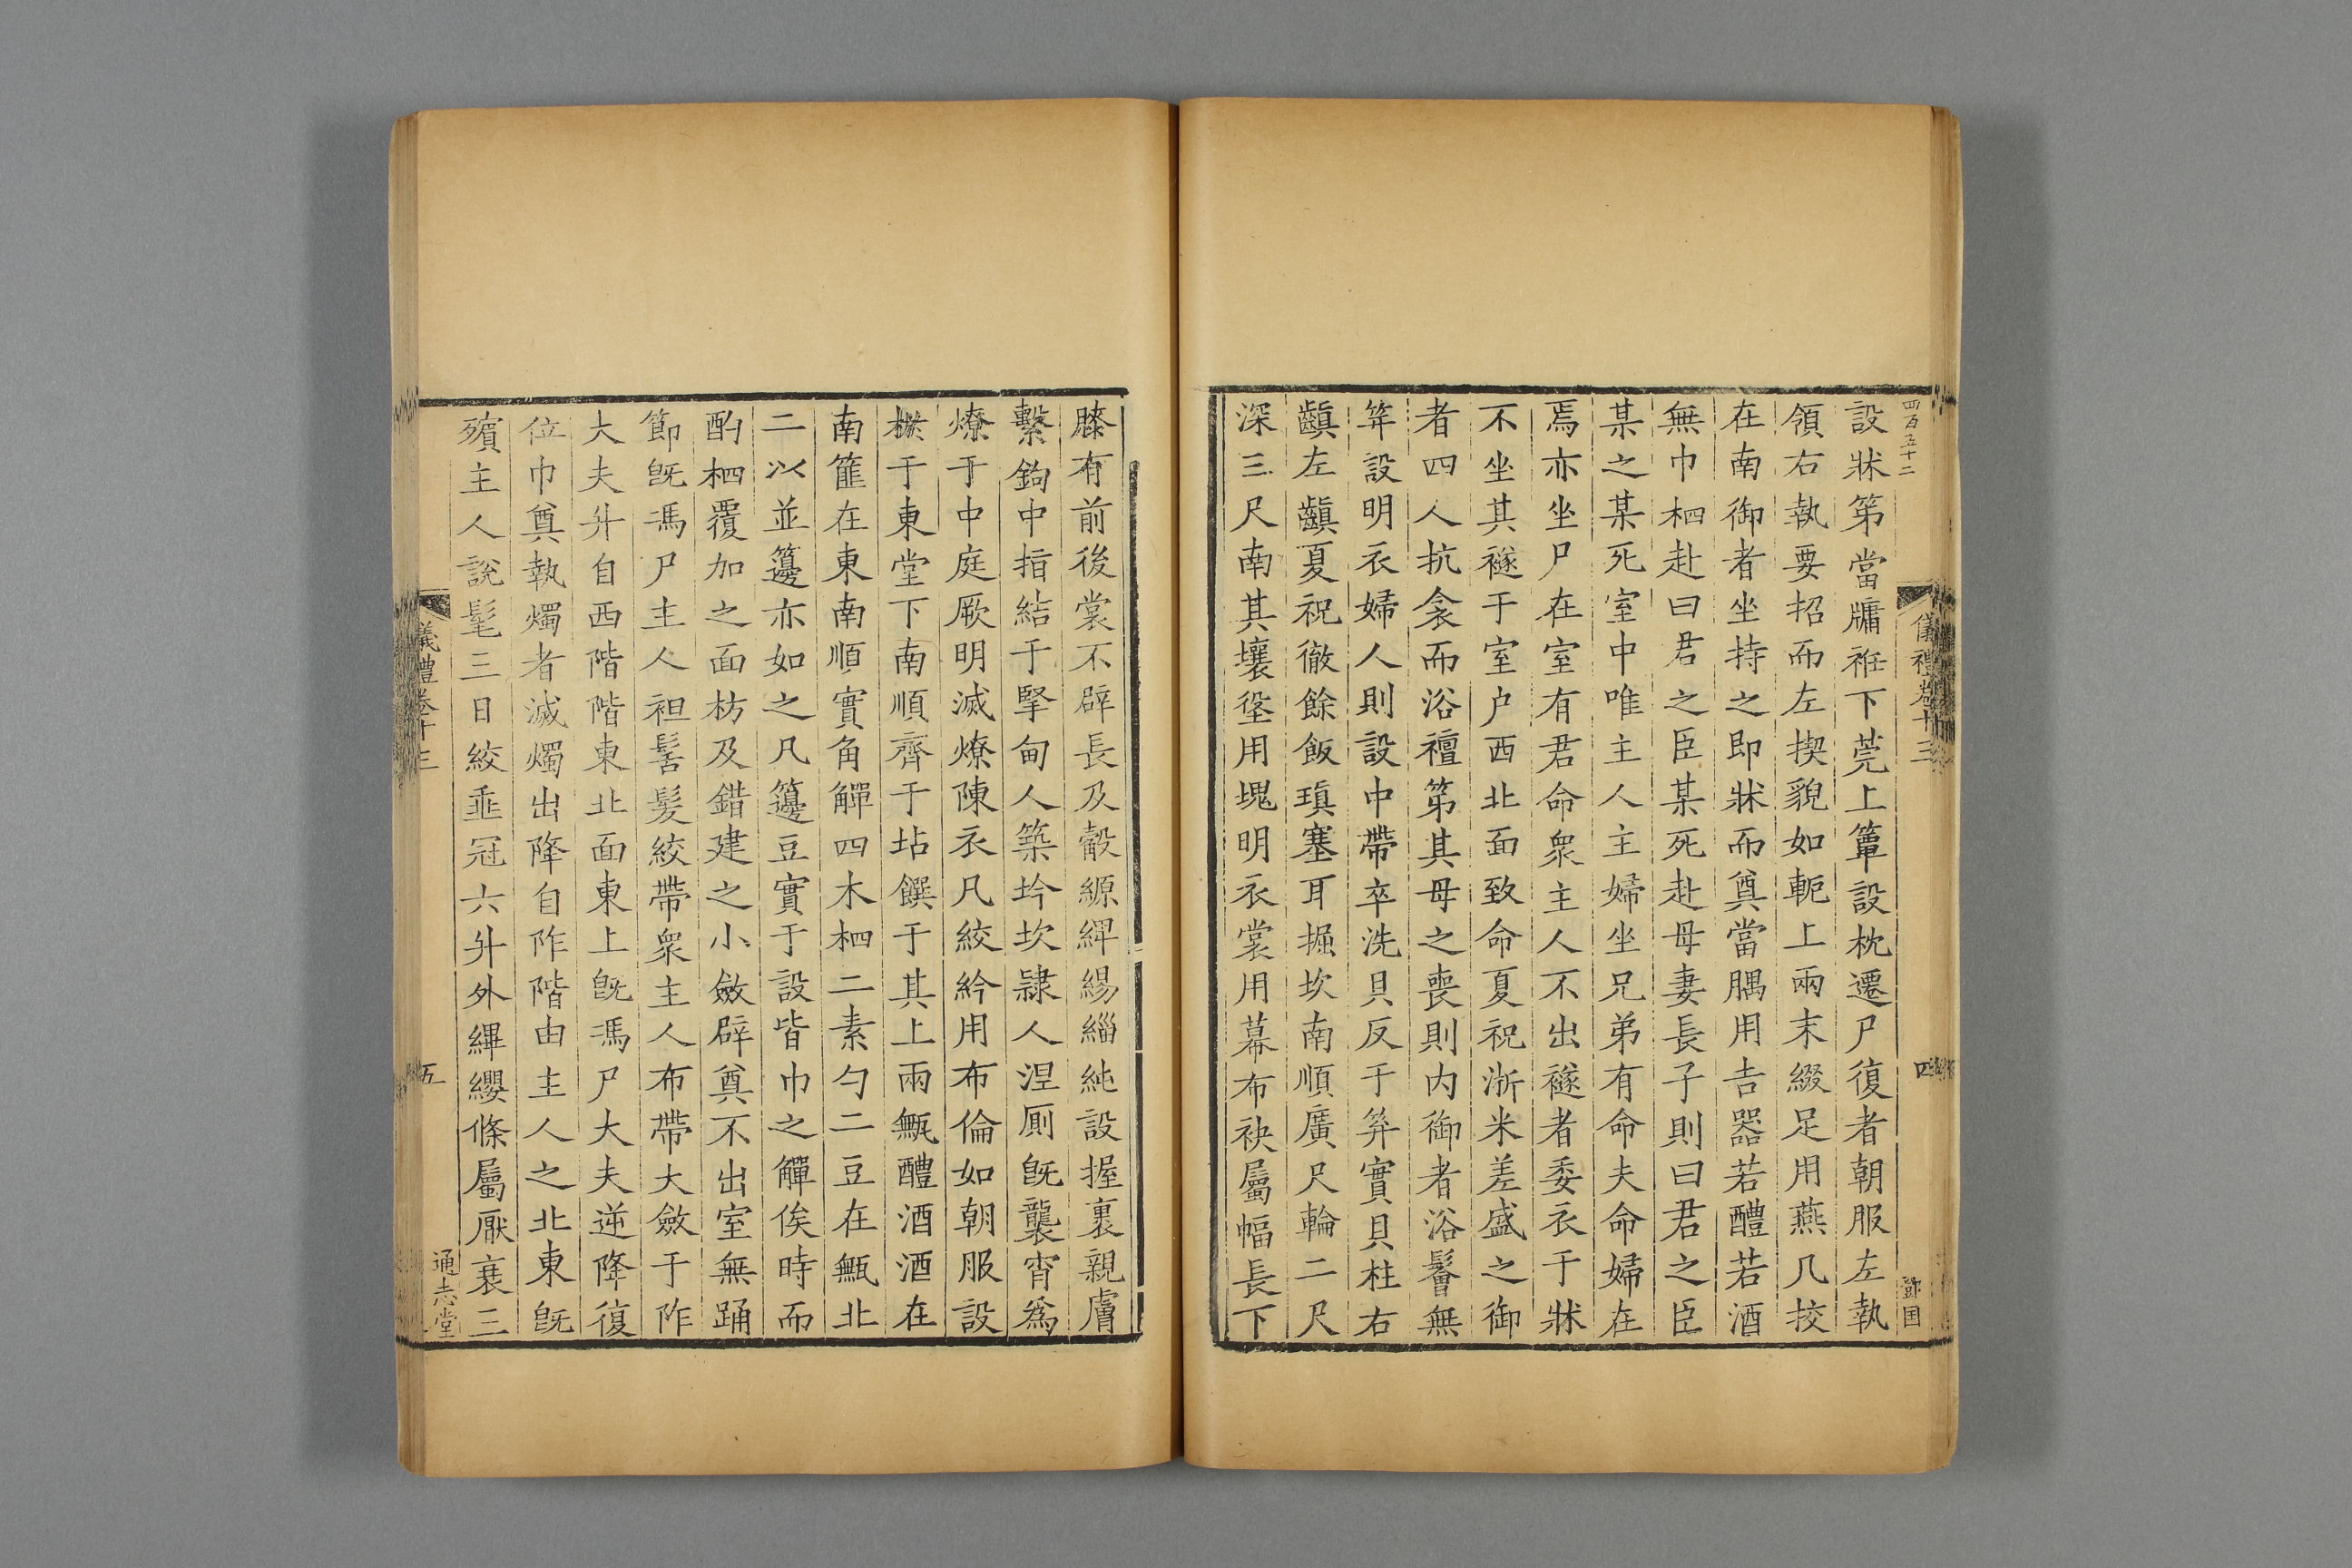 四百五十二
儀禮卷十三
四
設牀第當牖衽下莞上簟設枕遷尸復者朝服左執
領右執要招而左楔貌如軛上兩末綴足用燕几挍
在南御者坐持之即牀而奠當腢用吉器若醴若酒
無巾柶赴曰君之臣某死赴母妻長子則曰君之臣
某之某死室中唯主人主婦坐兄弟有命夫命婦在
焉亦坐尸在室有君命衆主人不出襚者委衣于牀
不坐其襚于室户西北面致命夏祝淅米差盛之御
者四人抗衾而浴襢第其母之喪則内御者浴鬠無
笄設明衣婦人則設中帶卒洗貝反于笲實貝柱右
齻左齻夏祝徹餘飯瑱塞耳掘坎南順廣尺輪二尺
深三尺南其壤垼用塊明衣裳用幕布袂屬幅長下
膝有前後裳不辟長及觳縓綼緆緇純設握裏親膚
繫鉤中指結于掔甸人築坅坎隷人涅厠旣襲宵爲
燎于中庭厥明滅燎陳衣凡絞紟用布倫如朝服設
棜于東堂下南順齊于坫饌于其上兩甒醴酒酒在
南篚在東南順實角觶四木柶二素勺二豆在甒北
二以並籩亦如之凡籩豆實于設皆巾之觶俟時而
酌柶覆加之面枋及錯建之小斂辟奠不出室無踊
節旣馮尸主人袒髺髮絞帶衆主人布帶大斂于阼
大夫升自西階階東北面東上旣馮尸大夫逆降復
位巾奠執燭者滅燭出降自阼階由主人之北東旣
殯主人說髦三日絞垂冠六升外縪纓條屬厭衰三
儀禮卷十三
五
通志堂